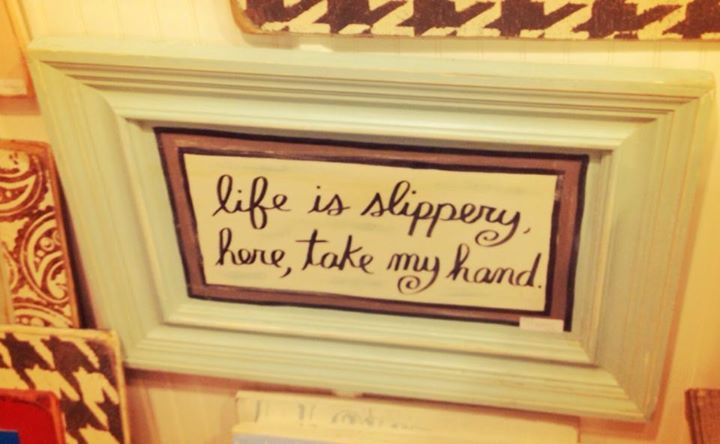 life is slippery,
here, take my hand.